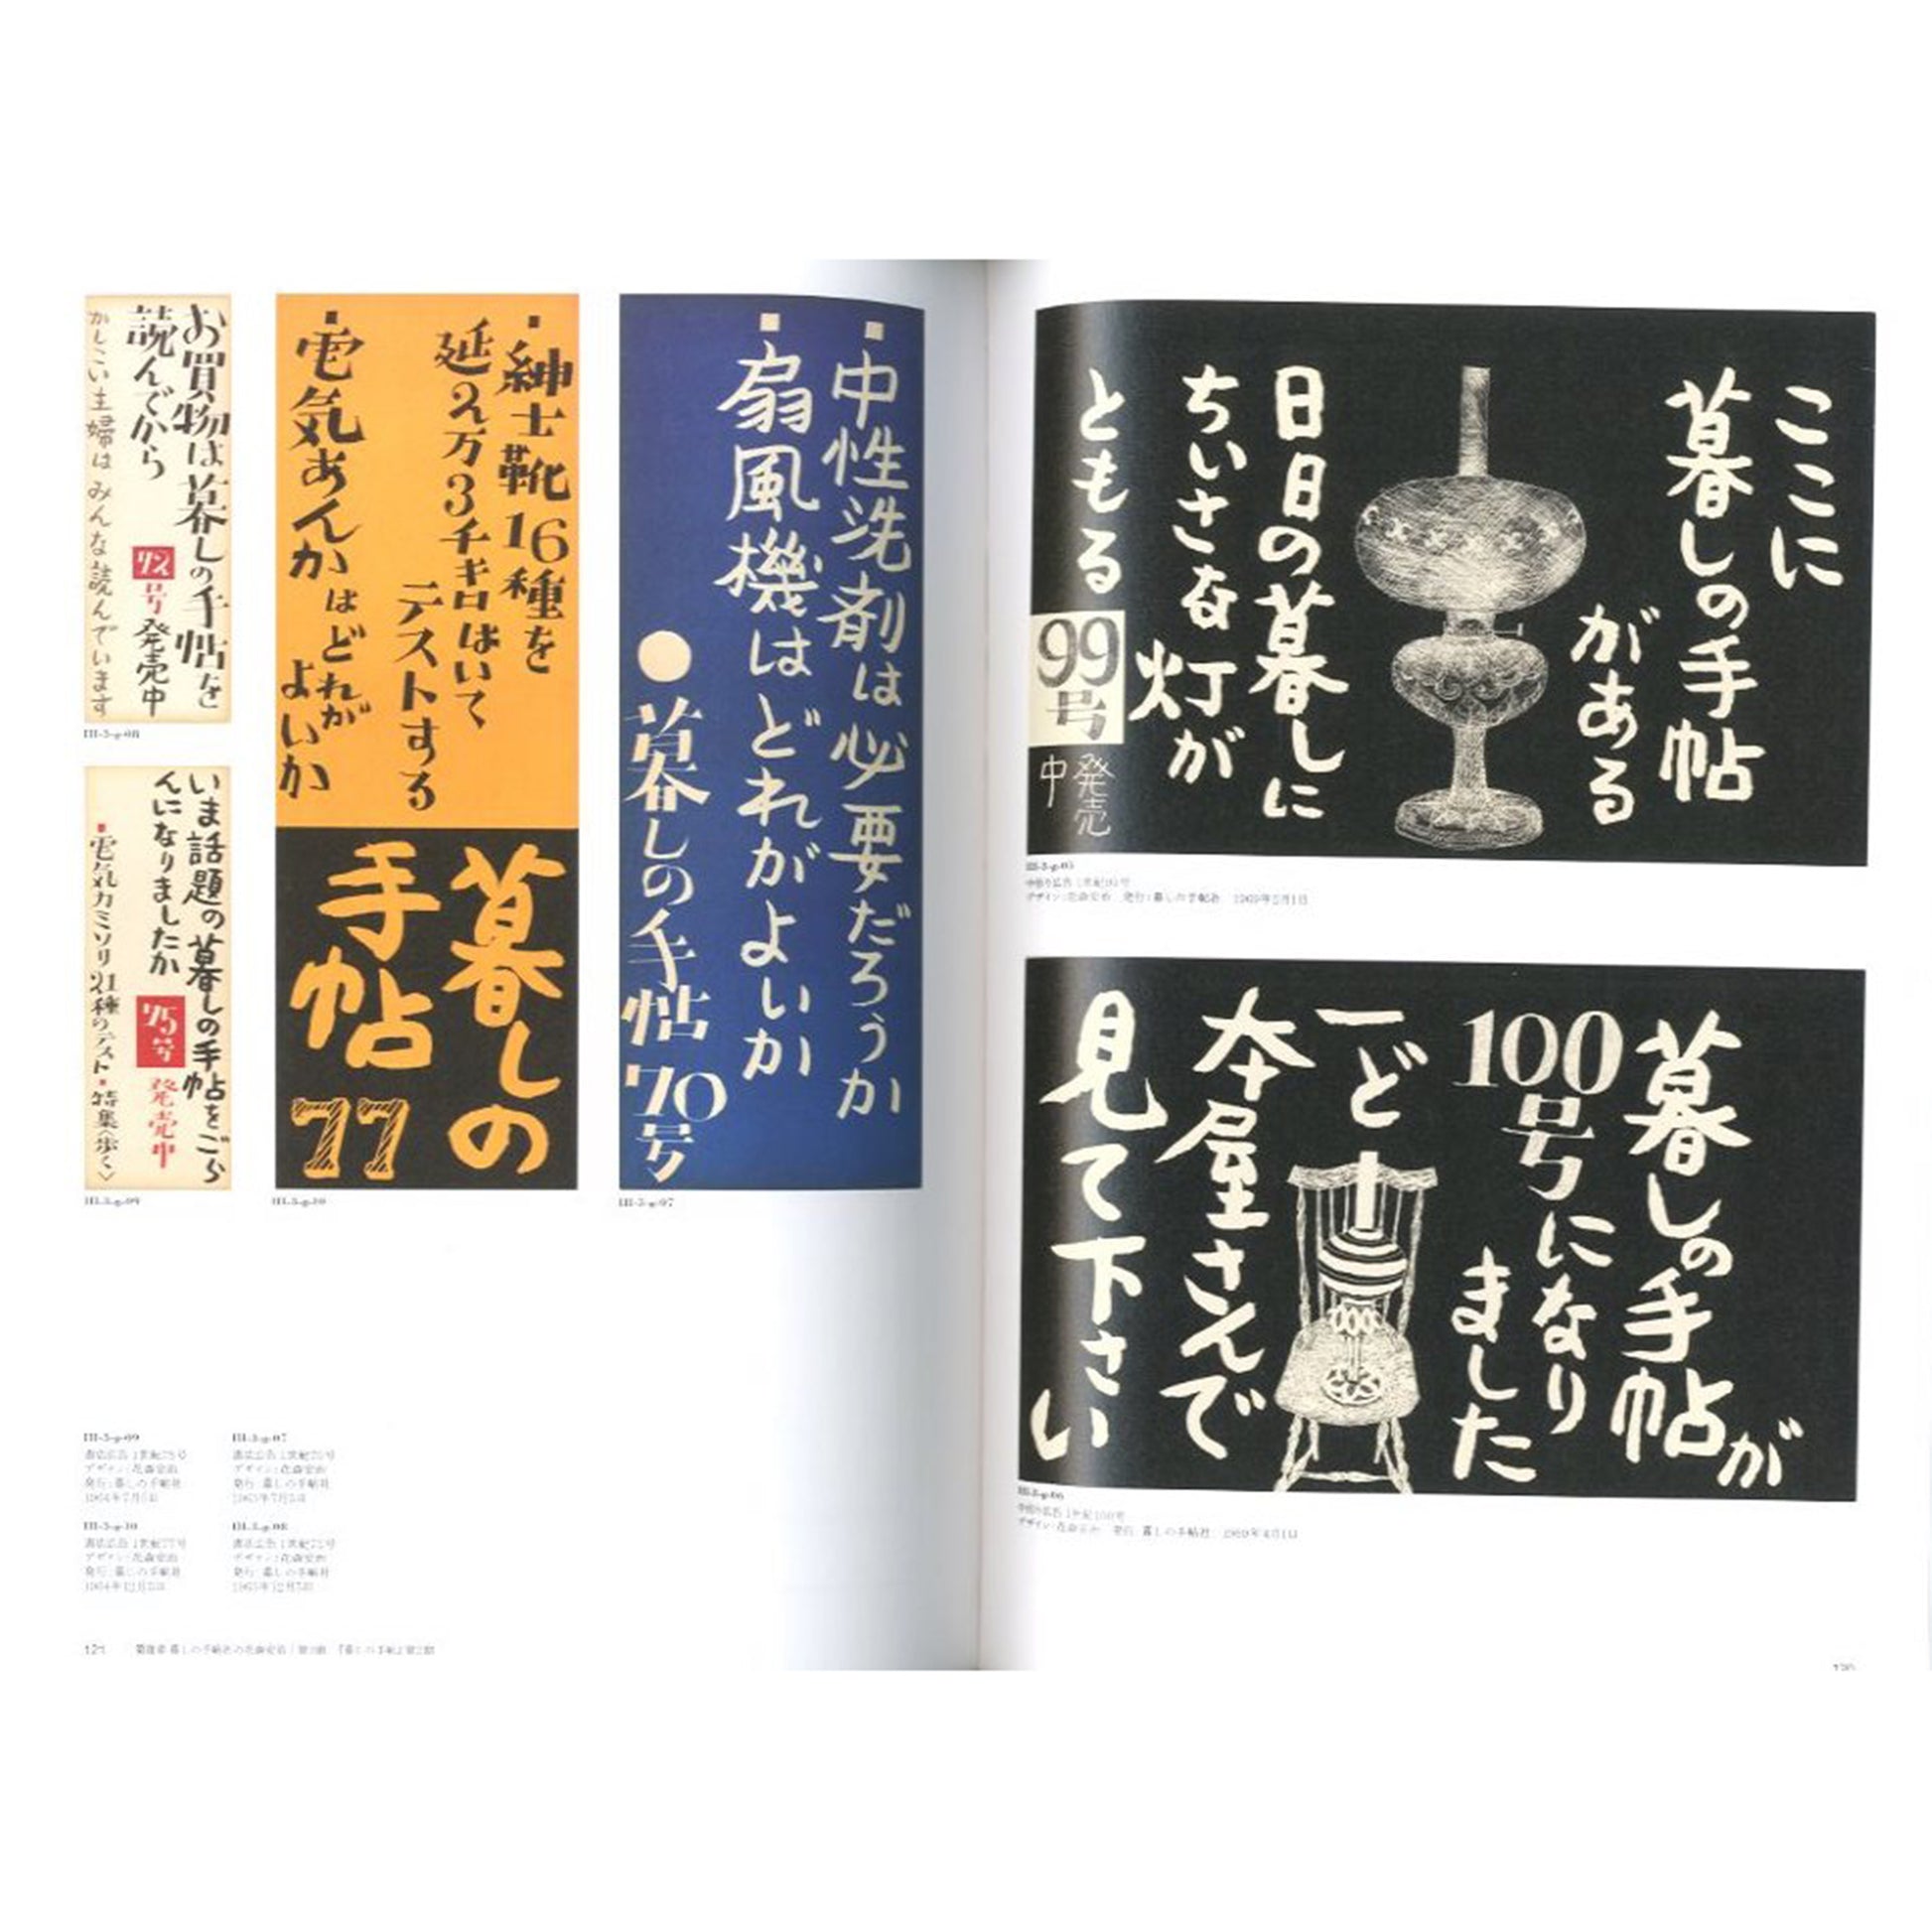 ここに
暮しの手帖
がある
日日の暮しに
ちいさな灯が
ともる
99号
発売
中
暮しの手帖が
100号になり
ました
一ど
本屋さんで
見て下さい
・中性洗剤は必要だろうか
・扇風機はどれがよいか
●暮しの手帖70号
・紳士靴16種を
延2万3千キロはいて
テストする
・電気あんかはどれが
よいか
暮しの
手帖
77
お買物は暮しの手帖を
読んでから
72号発売中
かしこい主婦はみんな読んでいます
III-3-g-08
いま話題の暮しの手帖をごら
んになりましたか
75号発売中
・電気カミソリ21種のテスト・特集〈歩く〉
III-3-g-09
III-3-g-10
III-3-g-07
III-3-g-05
デザイン：花森安治 発行：暮しの手帖社
III-3-g-06
デザイン：花森安治 発行：暮しの手帖社 1969年4月1日
III-3-g-09
デザイン：花森安治
発行：暮しの手帖社
III-3-g-07
デザイン：花森安治
発行：暮しの手帖社
III-3-g-10
デザイン：花森安治
発行：暮しの手帖社
III-3-g-08
デザイン：花森安治
発行：暮しの手帖社